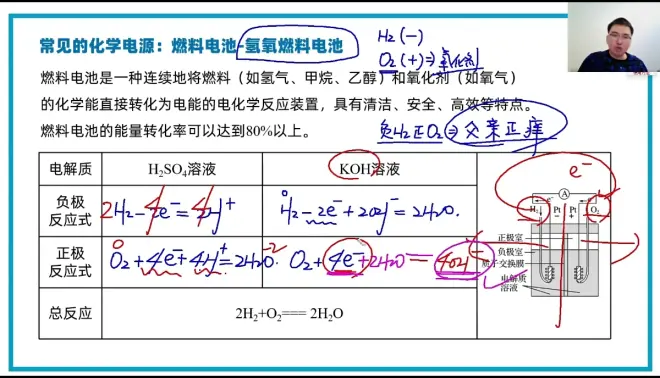 常见的化学电源：燃料电池-氢氧燃料电池
H₂(−)
O₂(+)⇒氧化剂
燃料电池是一种连续地将燃料（如氢气、甲烷、乙醇）和氧化剂（如氧气）
的化学能直接转化为电能的电化学反应装置，具有清洁、安全、高效等特点。
燃料电池的能量转化率可以达到80%以上。
负H₂正O₂⇒父亲正疼
电解质 H₂SO₄溶液 KOH溶液
负极反应式 2H₂-4e⁻=4H⁺ H₂-2e⁻+2OH⁻=2H₂O.
正极反应式 O₂+4e⁻+4H⁺=2H₂O. O₂+4e⁻+2H₂O=4OH⁻
总反应 2H₂+O₂=== 2H₂O
e⁻
A
e⁻ e⁻
H₂ Pt Pt O₂
− +
正极室
负极室
质子交换膜
电解质
溶液